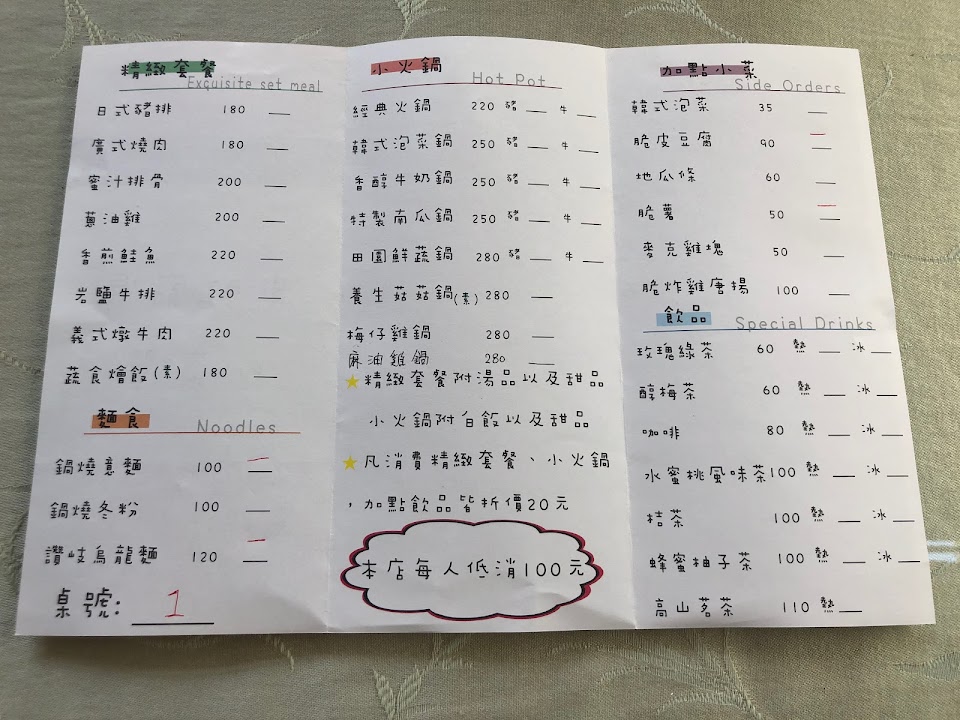 精緻套餐
Exquisite set meal
日式豬排 180 __
廣式燒肉 180 __
蜜汁排骨 200 __
蔥油雞 200 __
香煎鮭魚 220 __
岩鹽牛排 220 __
義式燉牛肉 220 __
蔬食燴飯(素) 180 __
麵食
Noodles
鍋燒意麵 100 一
鍋燒冬粉 100 __
讚岐烏龍麵 120 一
桌號: 1
小火鍋
Hot Pot
經典火鍋 220 豬 __ 牛 __
韓式泡菜鍋 250 豬 __ 牛 __
香醇牛奶鍋 250 豬 __ 牛 __
特製南瓜鍋 250 豬 __ 牛 __
田園鮮蔬鍋 280 豬 __ 牛 __
養生菇菇鍋(素) 280 __
梅仔雞鍋 280 __
麻油雞鍋 280 __
★精緻套餐附湯品以及甜品
小火鍋附白飯以及甜品
★凡消費精緻套餐、小火鍋
,加點飲品皆折價20元
本店每人低消100元
加點小菜
Side Orders
韓式泡菜 35 __
脆皮豆腐 90 一
地瓜條 60 __
脆薯 50 一
麥克雞塊 50 __
脆炸雞唐揚 100 __
飲品
Special Drinks
玫瑰綠茶 60 熱 __ 冰 __
醇梅茶 60 熱 __ 冰 __
咖啡 80 熱 __ 冰 __
水蜜桃風味茶 100 熱 __ 冰 __
桔茶 100 熱 __ 冰 __
蜂蜜柚子茶 100 熱 __ 冰 __
高山茗茶 110 熱 __